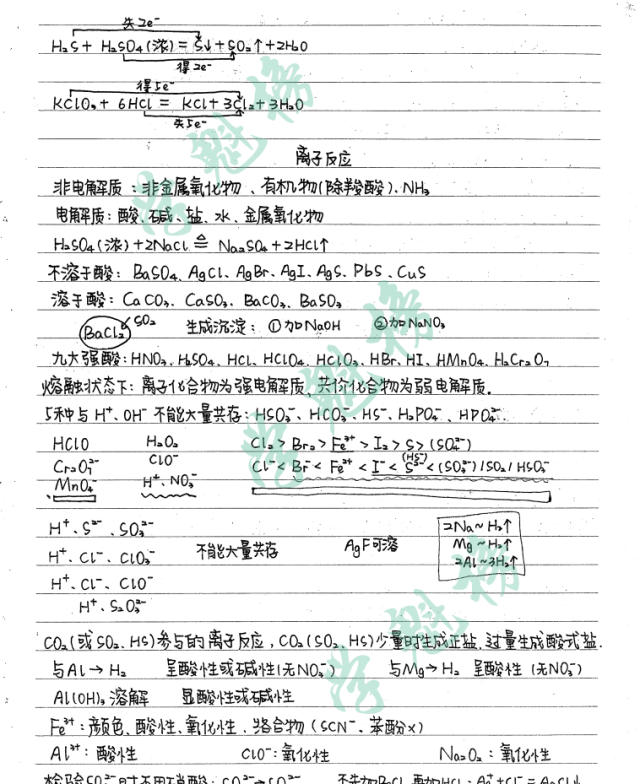 失2e⁻
H₂S + H₂SO₄(浓) = S↓ + SO₂↑ + 2H₂O
得2e⁻
得5e⁻
KClO₃ + 6HCl = KCl + 3Cl₂ + 3H₂O
失5e⁻
离子反应
非电解质：非金属氧化物、有机物(除羧酸)、NH₃
电解质：酸、碱、盐、水、金属氧化物
H₂SO₄(浓) + 2NaCl ≙ Na₂SO₄ + 2HCl↑
不溶于酸：BaSO₄、AgCl、AgBr、AgI、AgS、PbS、CuS
溶于酸：CaCO₃、CaSO₃、BaCO₃、BaSO₃
BaCl₂ SO₂ 生成沉淀：①加NaOH ②加NaNO₃
九大强酸：HNO₃、H₂SO₄、HCl、HClO₄、HClO₃、HBr、HI、HMnO₄、H₂Cr₂O₇
熔融状态下：离子化合物为强电解质，共价化合物为弱电解质．
5种与H⁺、OH⁻不能大量共存：HSO₃⁻、HCO₃⁻、HS⁻、H₂PO₄⁻、HPO₄²⁻
HClO H₂O₂ Cl₂ > Br₂ > Fe³⁺ > I₂ > S > (SO₄²⁻)
Cr₂O₇²⁻ ClO⁻ Cl⁻ < Br⁻ < Fe²⁺ < I⁻ < S²⁻(HS⁻) < (SO₃²⁻)/SO₂/HSO₃⁻
MnO₄⁻ H⁺、NO₃⁻
H⁺、S²⁻、SO₃²⁻
2Na~H₂↑
H⁺、Cl⁻、ClO₃⁻ 不能大量共存 AgF可溶 Mg~H₂↑
2Al~3H₂↑
H⁺、Cl⁻、ClO⁻
H⁺、S₂O₃²⁻
CO₂(或SO₂、HS)参与的离子反应，CO₂(SO₂、HS)少量时生成正盐，过量生成酸式盐．
与Al→H₂ 呈酸性或碱性(无NO₃⁻) 与Mg→H₂ 呈酸性(无NO₃⁻)
Al(OH)₃溶解 显酸性或碱性
Fe³⁺：颜色、酸性、氧化性、络合物(SCN⁻、苯酚×)
Al³⁺：酸性 ClO⁻：氧化性 Na₂O₂：氧化性
学魁榜
学魁榜
学魁榜